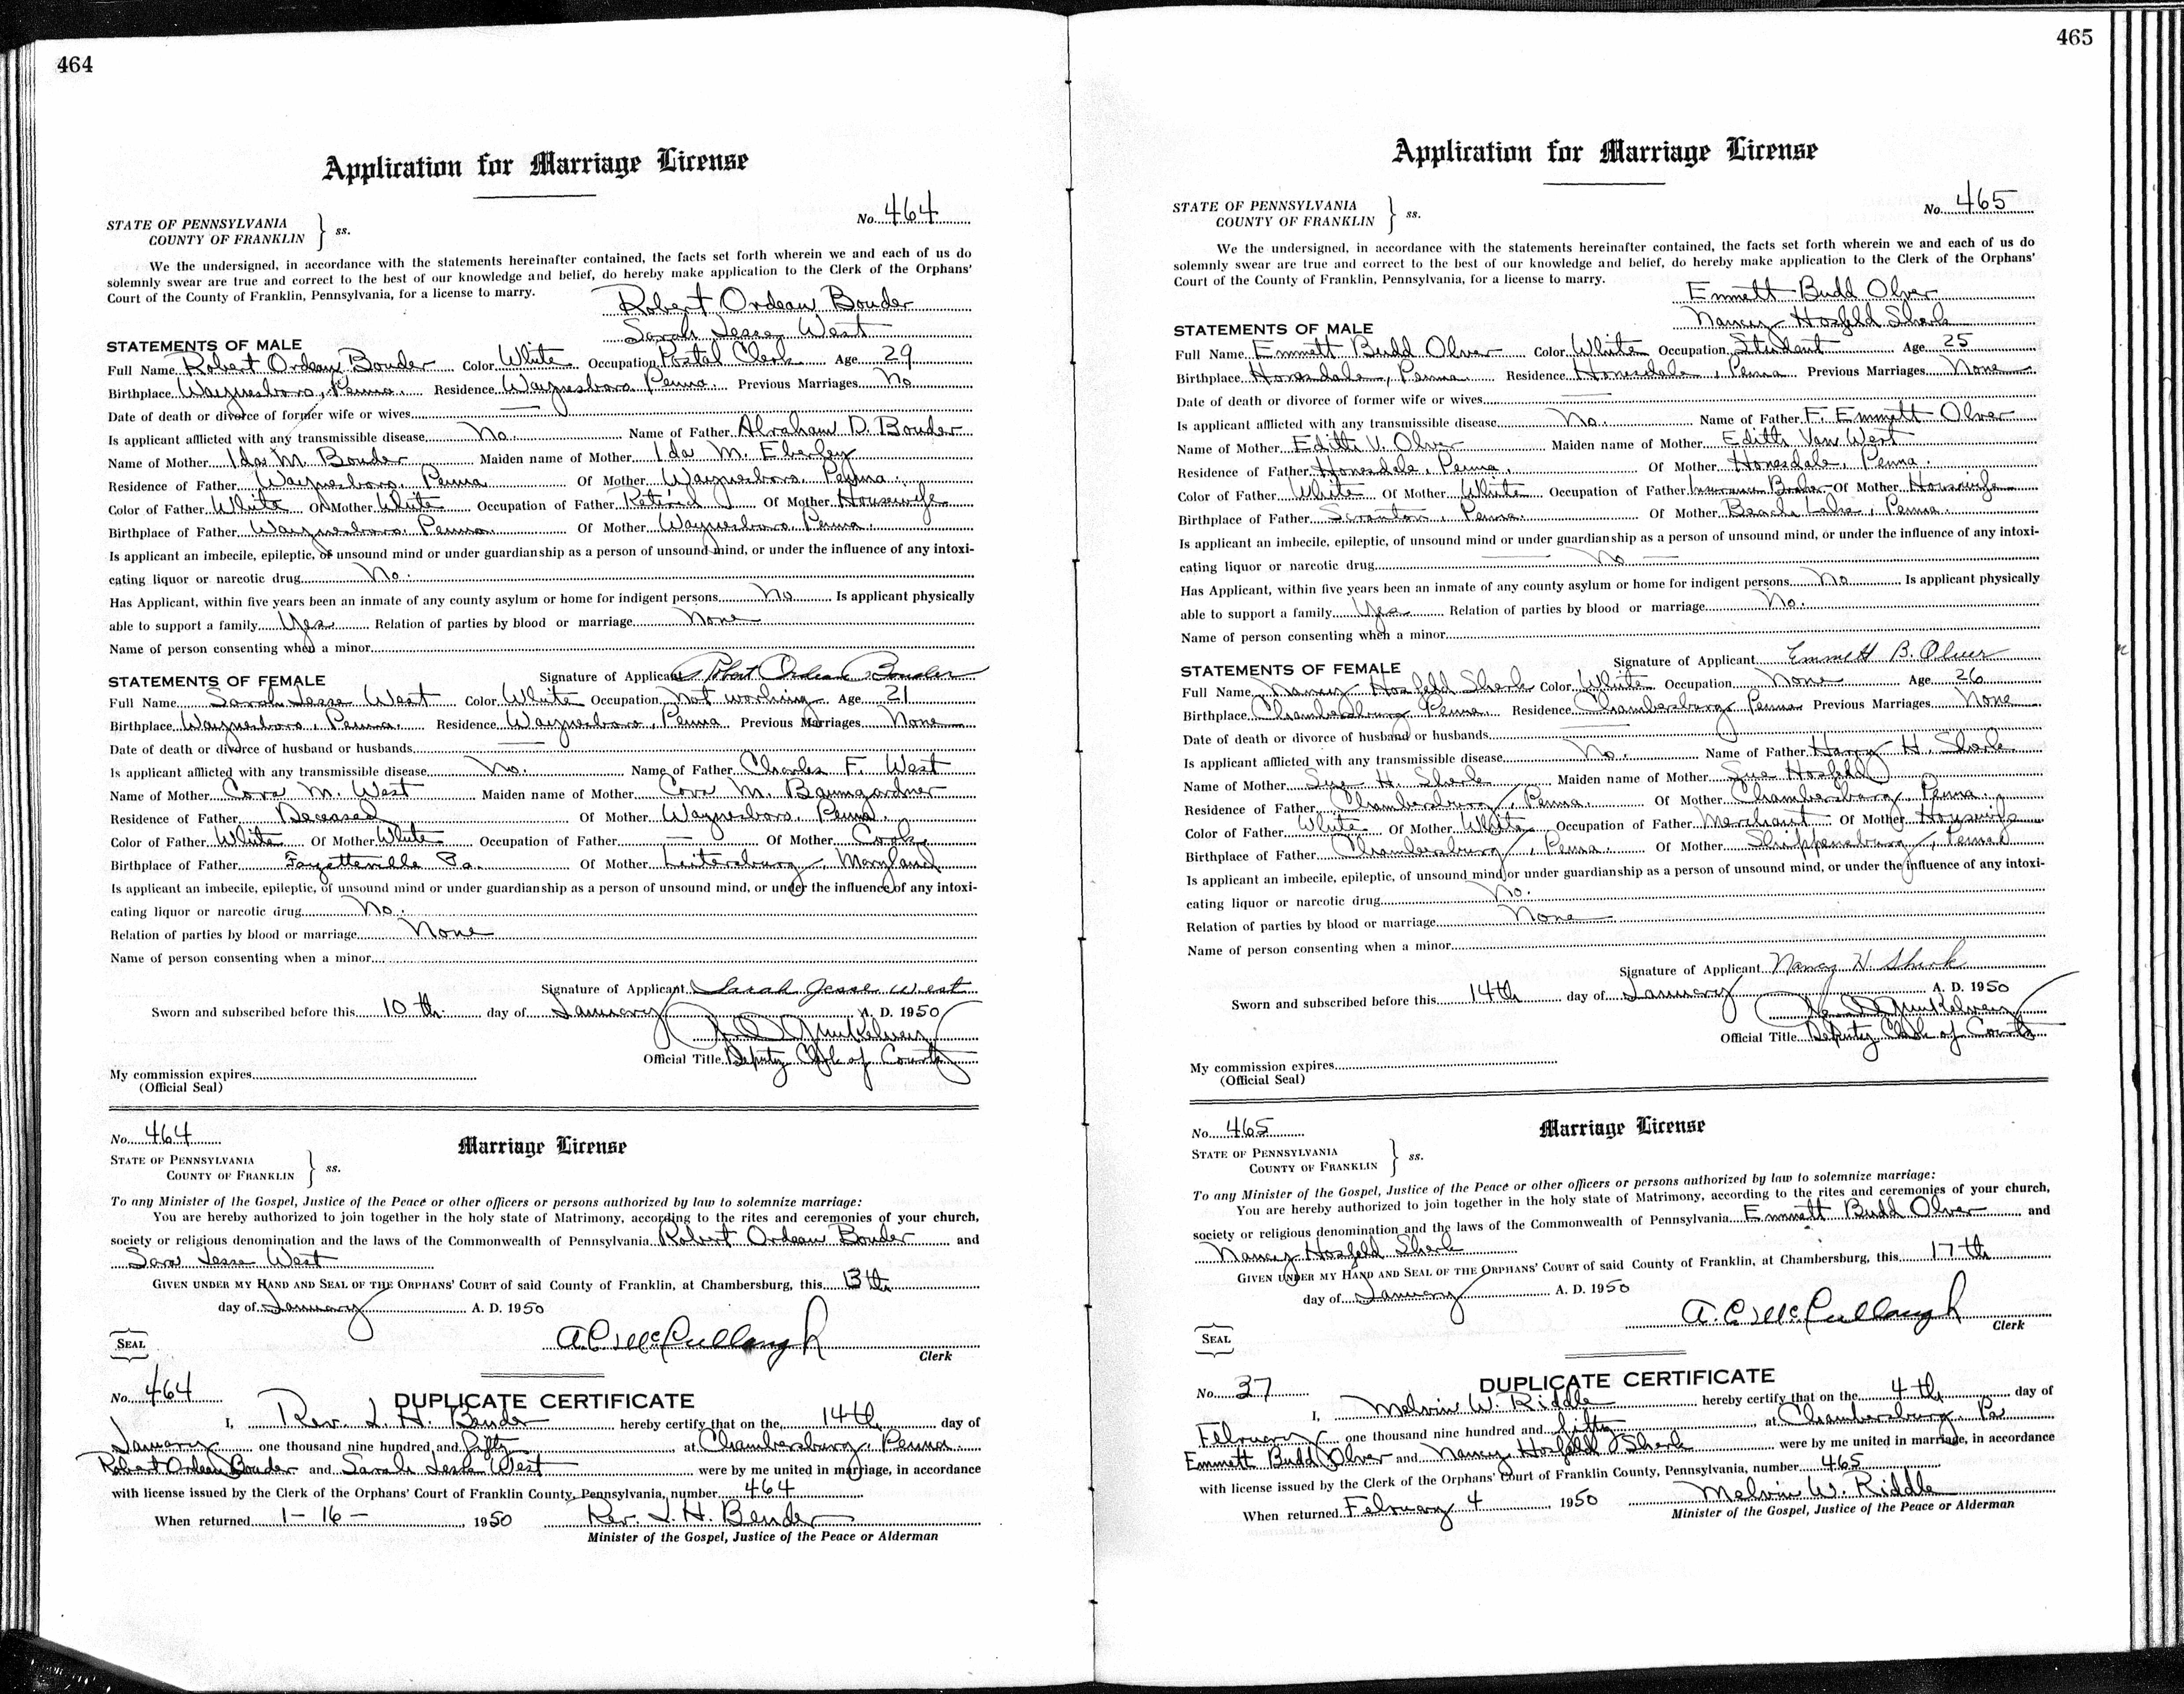 464
Application for Marriage License
STATE OF PENNSYLVANIA
COUNTY OF FRANKLIN } ss.
No. 464
We the undersigned, in accordance with the statements hereinafter contained, the facts set forth wherein we and each of us do
solemnly swear are true and correct to the best of our knowledge and belief, do hereby make application to the Clerk of the Orphans'
Court of the County of Franklin, Pennsylvania, for a license to marry.
Robert Ordean Bouder
Sarah Jesse West
STATEMENTS OF MALE
Full Name Robert Ordean Bouder Color White Occupation Postal Clerk Age 29
Birthplace Waynesboro, Penna. Residence Waynesboro, Penna. Previous Marriages No
Date of death or divorce of former wife or wives —
Is applicant afflicted with any transmissible disease No. Name of Father Abraham D. Bouder
Name of Mother Ida M. Bouder Maiden name of Mother Ida M. Eberley
Residence of Father Waynesboro, Penna Of Mother Waynesboro, Penna.
Color of Father White Of Mother White Occupation of Father Retired Of Mother Housewife
Birthplace of Father Waynesboro, Penna. Of Mother Waynesboro, Penna.
Is applicant an imbecile, epileptic, of unsound mind or under guardianship as a person of unsound mind, or under the influence of any intoxi-
cating liquor or narcotic drug No.
Has Applicant, within five years been an inmate of any county asylum or home for indigent persons No Is applicant physically
able to support a family Yes Relation of parties by blood or marriage None
Name of person consenting when a minor
Signature of Applicant Robert Ordean Bouder
STATEMENTS OF FEMALE
Full Name Sarah Jesse West Color White Occupation Not working Age 21
Birthplace Waynesboro, Penna. Residence Waynesboro, Penna Previous Marriages None
Date of death or divorce of husband or husbands —
Is applicant afflicted with any transmissible disease No. Name of Father Charles F. West
Name of Mother Cora M. West Maiden name of Mother Cora M. Baumgardner
Residence of Father Deceased Of Mother Waynesboro, Penna.
Color of Father White Of Mother White Occupation of Father — Of Mother Cook
Birthplace of Father Fayetteville Pa. Of Mother Leitersburg, Maryland
Is applicant an imbecile, epileptic, of unsound mind or under guardianship as a person of unsound mind, or under the influence of any intoxi-
cating liquor or narcotic drug No.
Relation of parties by blood or marriage None
Name of person consenting when a minor
Signature of Applicant Sarah Jesse West
Sworn and subscribed before this 10th. day of January A. D. 1950
Official Title Deputy Clerk of Courts
My commission expires
(Official Seal)
No. 464
Marriage License
STATE OF PENNSYLVANIA
COUNTY OF FRANKLIN } ss.
To any Minister of the Gospel, Justice of the Peace or other officers or persons authorized by law to solemnize marriage:
You are hereby authorized to join together in the holy state of Matrimony, according to the rites and ceremonies of your church,
society or religious denomination and the laws of the Commonwealth of Pennsylvania Robert Ordean Bouder and
Sara Jesse West
GIVEN UNDER MY HAND AND SEAL OF THE ORPHANS' COURT of said County of Franklin, at Chambersburg, this 13th
day of January A. D. 1950
A. C. McCullough
SEAL
Clerk
No. 464
DUPLICATE CERTIFICATE
I, Rev. L. H. Bender hereby certify that on the 14th day of
January one thousand nine hundred and fifty at Chambersburg, Penna.
Robert Ordean Bouder and Sarah Jesse West were by me united in marriage, in accordance
with license issued by the Clerk of the Orphans' Court of Franklin County, Pennsylvania, number 464
When returned 1-16- 1950 Rev. L. H. Bender
Minister of the Gospel, Justice of the Peace or Alderman
465
Application for Marriage License
STATE OF PENNSYLVANIA
COUNTY OF FRANKLIN } ss.
No. 465
We the undersigned, in accordance with the statements hereinafter contained, the facts set forth wherein we and each of us do
solemnly swear are true and correct to the best of our knowledge and belief, do hereby make application to the Clerk of the Orphans'
Court of the County of Franklin, Pennsylvania, for a license to marry.
Emmett Budd Olver
Nancy Hosfeld Sherk
STATEMENTS OF MALE
Full Name Emmett Budd Olver Color White Occupation Student Age 25
Birthplace Honesdale, Penna. Residence Honesdale, Penna Previous Marriages None
Date of death or divorce of former wife or wives —
Is applicant afflicted with any transmissible disease No. Name of Father F. Emmett Olver
Name of Mother Edith V. Olver Maiden name of Mother Edith Van West
Residence of Father Honesdale, Penna. Of Mother Honesdale, Penna.
Color of Father White Of Mother White Occupation of Father Insurance Broker Of Mother Housewife
Birthplace of Father Scranton, Penna. Of Mother Beach Lake, Penna.
Is applicant an imbecile, epileptic, of unsound mind or under guardianship as a person of unsound mind, or under the influence of any intoxi-
cating liquor or narcotic drug — No —
Has Applicant, within five years been an inmate of any county asylum or home for indigent persons No Is applicant physically
able to support a family Yes Relation of parties by blood or marriage No.
Name of person consenting when a minor
Signature of Applicant Emmett B. Olver
STATEMENTS OF FEMALE
Full Name Nancy Hosfeld Sherk Color White Occupation None Age 26
Birthplace Chambersburg Penna. Residence Chambersburg Penna Previous Marriages None
Date of death or divorce of husband or husbands —
Is applicant afflicted with any transmissible disease No. Name of Father Harry H. Sherk
Name of Mother Sue H. Sherk Maiden name of Mother Sue Hosfeld
Residence of Father Chambersburg, Penna. Of Mother Chambersburg, Penna.
Color of Father White Of Mother White Occupation of Father Merchant Of Mother Housewife
Birthplace of Father Chambersburg, Penna. Of Mother Shippensburg, Penna
Is applicant an imbecile, epileptic, of unsound mind or under guardianship as a person of unsound mind, or under the influence of any intoxi-
cating liquor or narcotic drug No.
Relation of parties by blood or marriage None
Name of person consenting when a minor
Signature of Applicant Nancy H. Sherk
Sworn and subscribed before this 14th day of January A. D. 1950
Official Title Deputy Clerk of Courts
My commission expires
(Official Seal)
No. 465
Marriage License
STATE OF PENNSYLVANIA
COUNTY OF FRANKLIN } ss.
To any Minister of the Gospel, Justice of the Peace or other officers or persons authorized by law to solemnize marriage:
You are hereby authorized to join together in the holy state of Matrimony, according to the rites and ceremonies of your church,
society or religious denomination and the laws of the Commonwealth of Pennsylvania Emmett Budd Olver and
Nancy Hosfeld Sherk
GIVEN UNDER MY HAND AND SEAL OF THE ORPHANS' COURT of said County of Franklin, at Chambersburg, this 17th
day of January A. D. 1950
A. C. McCullough
SEAL
Clerk
No. 37
DUPLICATE CERTIFICATE
I, Melvin W. Riddle hereby certify that on the 4th day of
February one thousand nine hundred and fifty at Chambersburg, Pa
Emmett Budd Olver and Nancy Hosfeld Sherk were by me united in marriage, in accordance
with license issued by the Clerk of the Orphans' Court of Franklin County, Pennsylvania, number 465
When returned February 4 1950 Melvin W. Riddle
Minister of the Gospel, Justice of the Peace or Alderman